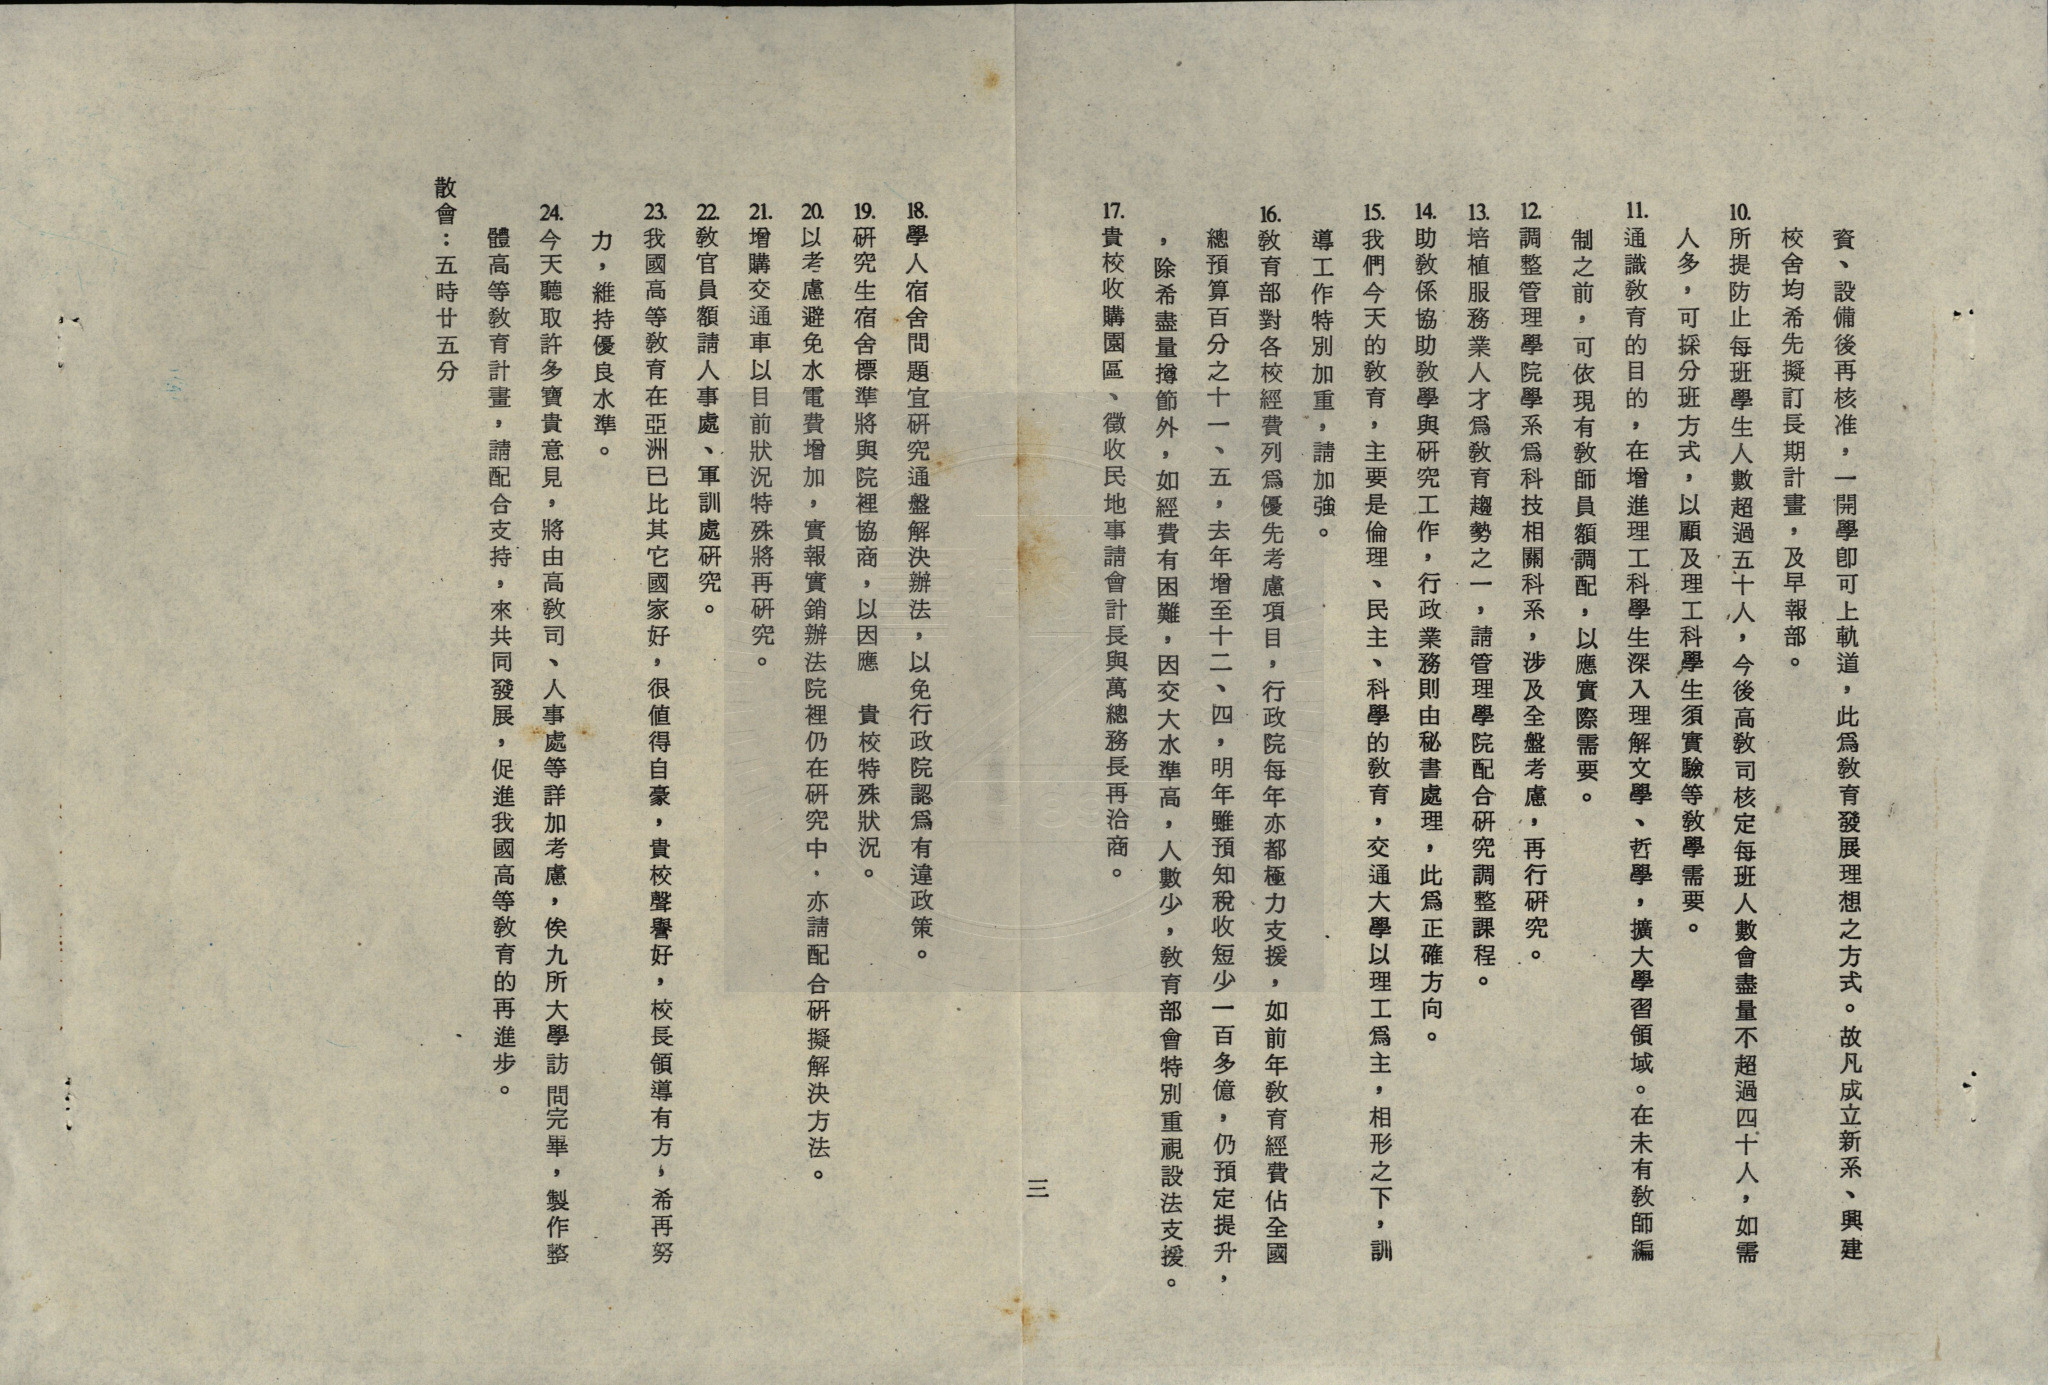 資、設備後再核准，一開學卽可上軌道，此爲教育發展理想之方式。故凡成立新系、興建
校舍均希先擬訂長期計畫，及早報部。
10.所提防止每班學生人數超過五十人，今後高教司核定每班人數會盡量不超過四十人，如需
人多，可採分班方式，以顧及理工科學生須實驗等教學需要。
11.通識教育的目的，在增進理工科學生深入理解文學、哲學，擴大學習領域。在未有教師編
制之前，可依現有教師員額調配，以應實際需要。
12.調整管理學院學系爲科技相關科系，涉及全盤考慮，再行研究。
13.培植服務業人才爲教育趨勢之一，請管理學院配合研究調整課程。
14.助教係協助教學與研究工作，行政業務則由秘書處理，此爲正確方向。
15.我們今天的教育，主要是倫理、民主、科學的教育，交通大學以理工爲主，相形之下，訓
導工作特別加重，請加強。
16.教育部對各校經費列爲優先考慮項目，行政院每年亦都極力支援，如前年教育經費佔全國
總預算百分之十一、五，去年增至十二、四，明年雖預知稅收短少一百多億，仍預定提升，
，除希盡量撙節外，如經費有困難，因交大水準高，人數少，教育部會特別重視設法支援。
17.貴校收購園區、徵收民地事請會計長與萬總務長再洽商。
三
18.學人宿舍問題宜研究通盤解決辦法，以免行政院認爲有違政策。
19.研究生宿舍標準將與院裡協商，以因應　貴校特殊狀況。
20.以考慮避免水電費增加，實報實銷辦法院裡仍在研究中．亦請配合研擬解決方法。
21.增購交通車以目前狀況特殊將再研究。
22.教官員額請人事處、軍訓處研究。
23.我國高等教育在亞洲已比其它國家好，很值得自豪，貴校聲譽好，校長領導有方，希再努
力，維持優良水準。
24.今天聽取許多寶貴意見，將由高教司、人事處等詳加考慮，俟九所大學訪問完畢，製作整
體高等教育計畫，請配合支持，來共同發展，促進我國高等教育的再進步。
散會：五時廿五分